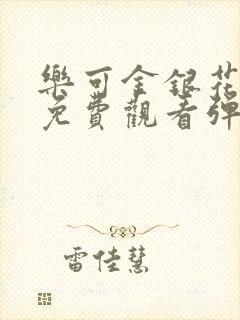 樂可金銀花
免費觀看彈
雷佳慧